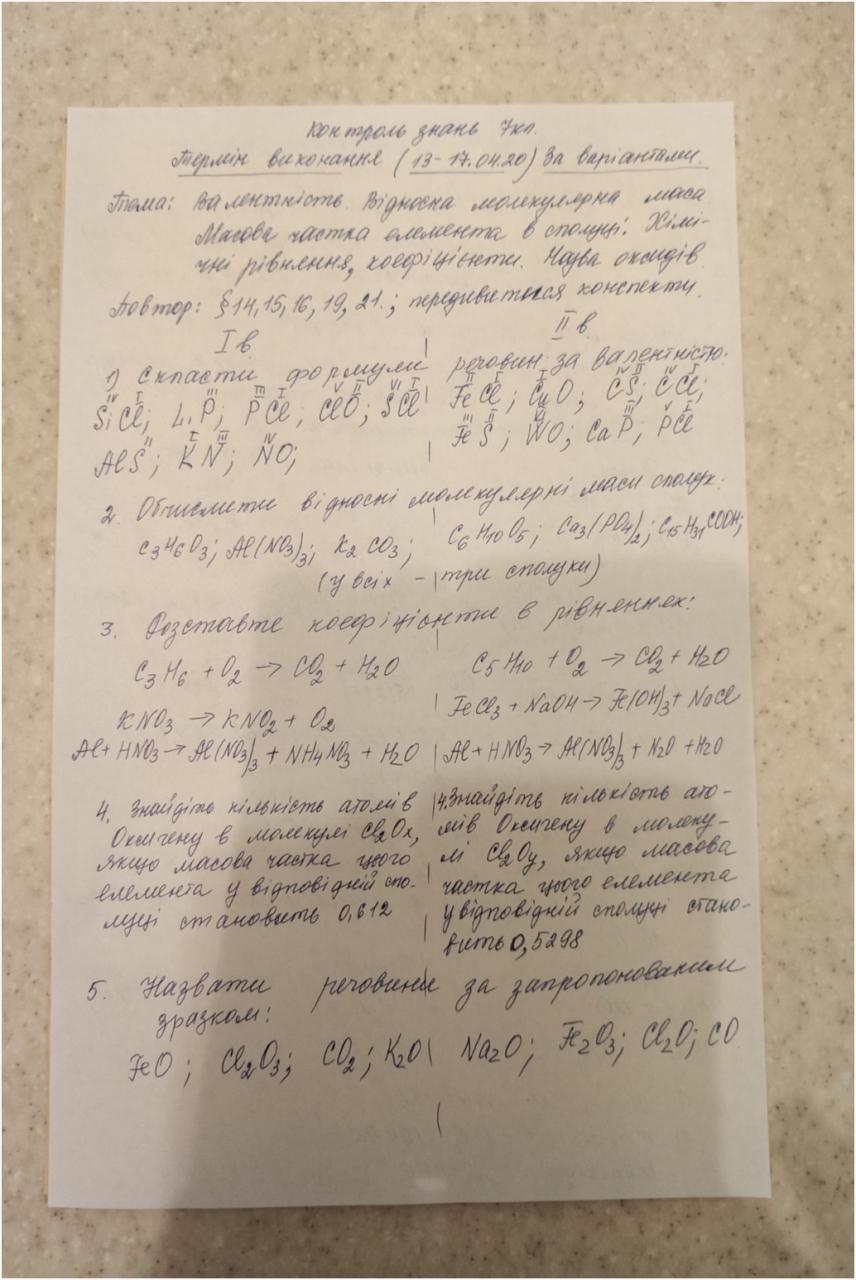 Контроль знань 7кл.
Термін виконання (13-17.04.20) За варіантами.
Тема: Валентність. Відносна молекулярна маса
Масова частка елемента в сполуці. Хімі-
чні рівняння, коефіцієнти. Назва оксидів.
Повтор: § 14, 15, 16, 19, 21.; передивитися конспекти.
I в. II в.
1) Скласти формули речовин за валентністю:
IV I III III I V II VI I
SiCl; LiP; PCl; ClO; SCl
III I I IV II IV I
FeCl; CuO; CS; CCl;
II I III IV
AlS; KN; NO;
III II VI III V I
FeS; WO; CaP; PCl
2. Обчислити відносні молекулярні маси сполук:
C3H6O3; Al(NO3)3; K2CO3; C6H10O5; Ca3(PO4)2; C15H31COOH;
(у всіх - три сполуки)
3. Розставте коефіцієнти в рівняннях:
C3H6 + O2 → CO2 + H2O
KNO3 → KNO2 + O2
Al + HNO3 → Al(NO3)3 + NH4NO3 + H2O
C5H10 + O2 → CO2 + H2O
FeCl3 + NaOH → Fe(OH)3 + NaCl
Al + HNO3 → Al(NO3)3 + N2O + H2O
4. Знайдіть кількість атомів
Оксигену в молекулі Cl2Ox,
якщо масова частка цього
елемента у відповідній спо-
луці становить 0,612
4. Знайдіть кількість ато-
мів Оксигену в молеку-
лі Cl2Oy, якщо масова
частка цього елемента
у відповідній сполуці стано-
вить 0,5298
5. Назвати речовини за запропонованим
зразком:
FeO; Cl2O3; CO2; K2O Na2O; Fe2O3; Cl2O; CO